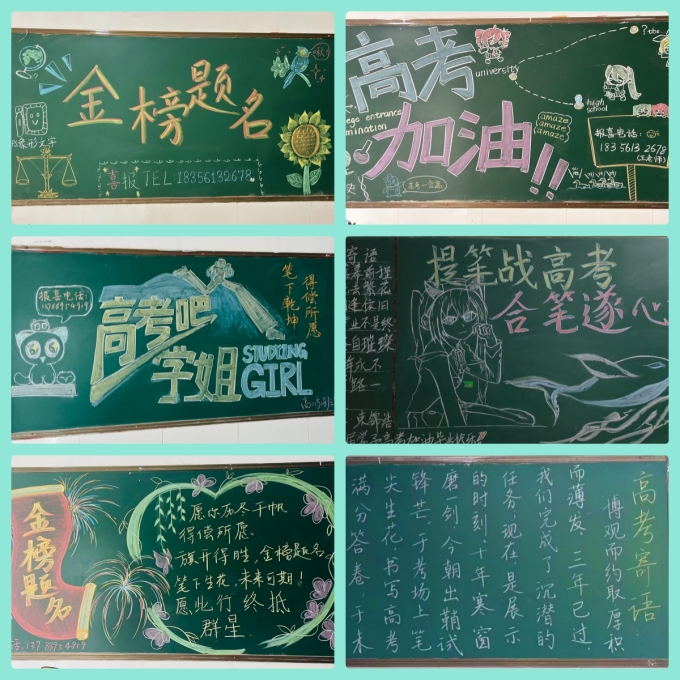 金榜题名
象形文字
喜报TEL:18356132678
高考
加油!!
university
?the
high
school
ege entrance
mination
amaze
amaze
amaze
报喜电话:
183 5613 2678
(王老师)
报喜电话:
高考吧
学姐
STUDYING
GIRL
笔下乾坤
得偿所愿
寄语
提笔战高考
合笔遂心
高考加油毕业快乐
金榜题名
愿你历尽千帆
得偿所愿
旗开得胜,金榜题名
笔下生花,未来可期!
愿此行终抵
群星
高考寄语:
博观而约取,厚积
而薄发。三年已过,
我们完成了沉潜的
任务,现在,是展示
的时刻,十年寒窗
磨一剑,今朝出鞘试
锋芒,于考场上笔
尖生花,书写高考
满分答卷,于未